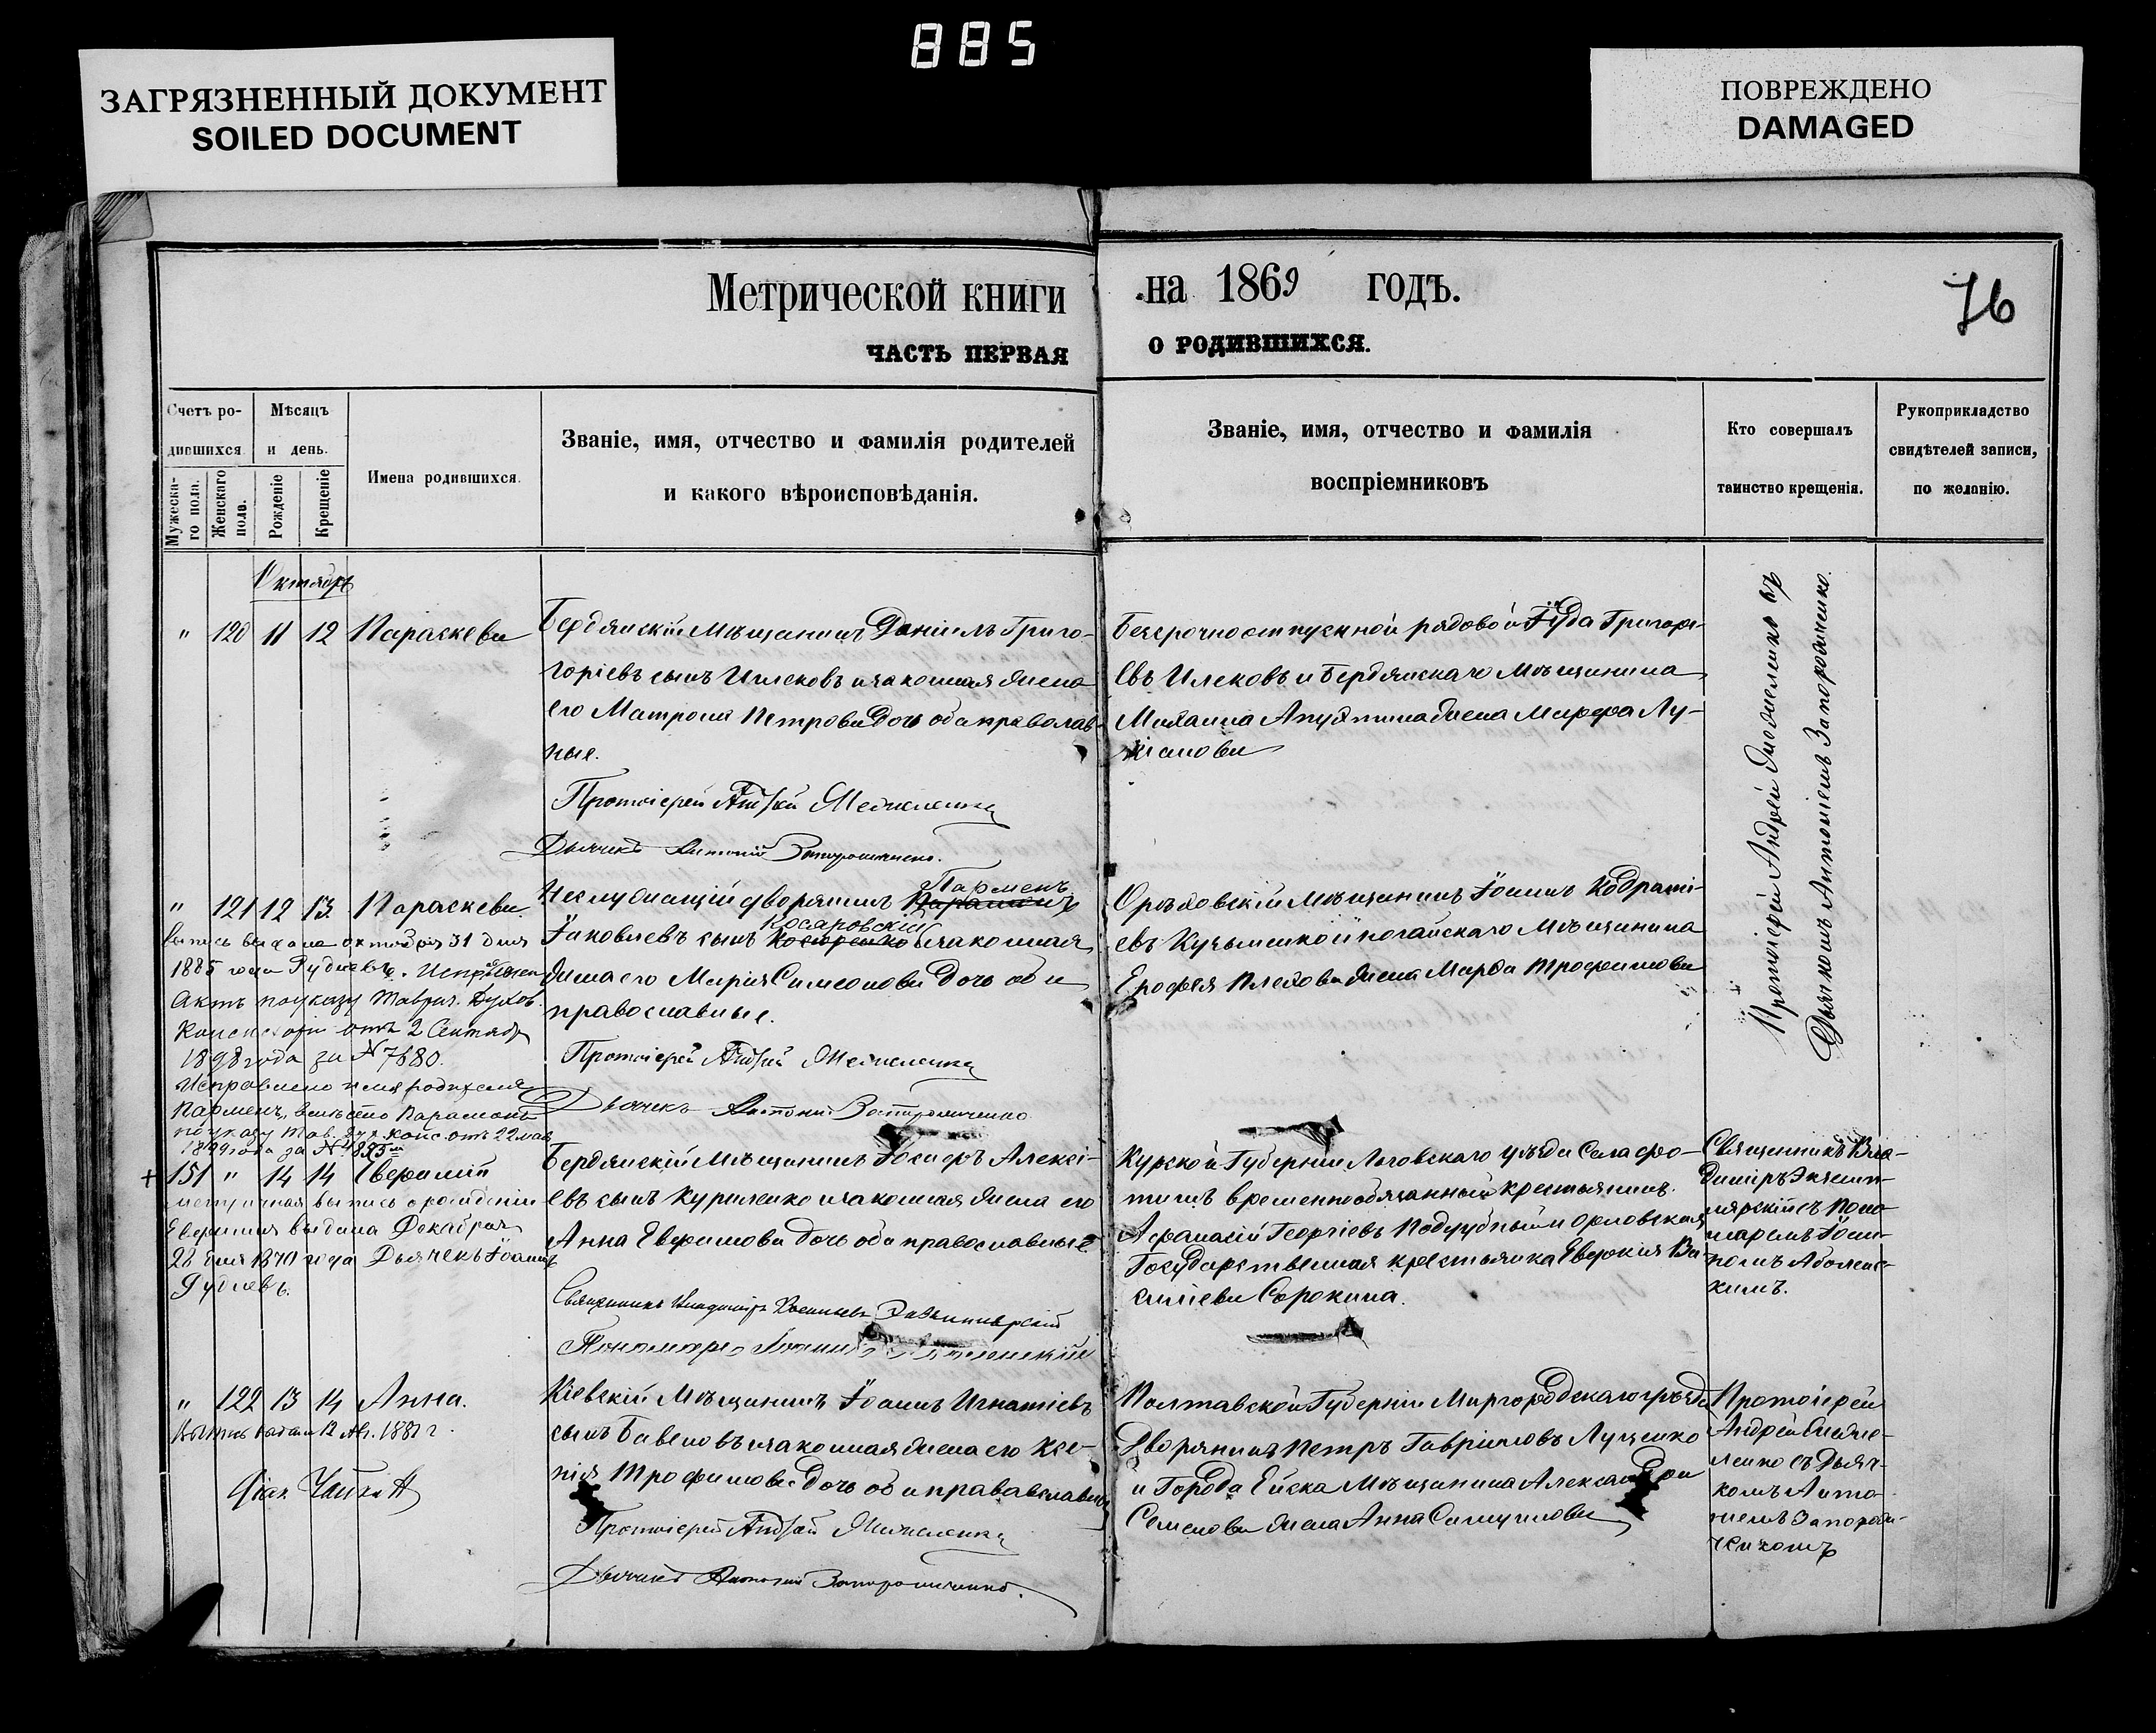 885
ЗАГРЯЗНЕННЫЙ ДОКУМЕНТ
SOILED DOCUMENT
ПОВРЕЖДЕНО
DAMAGED
Метрической книги на 1869 годъ.
76
ЧАСТЬ ПЕРВАЯ О РОДИВШИХСЯ.
Счетъ родившихся
Мужеска-
го пола.
Женскаго
пола.
Мѣсяцъ
и день.
Рожденіе
Крещеніе
Имена родившихся.
Званіе, имя, отчество и фамилія родителей
и какого вѣроисповѣданія.
Званіе, имя, отчество и фамилія
воспріемниковъ
Кто совершалъ
таинство крещенія.
Рукоприкладство
свидѣтелей записи,
по желанію.
Октябрь
" 120 11 12 Параскева
Бердянскій Мѣщанинъ Даніилъ Григо-
горіевъ сынъ Илековъ и законная жена
его Матрона Петрова дочь оба православ-
ные.
Протоіерей Андрей
Дьячекъ Антоній Запорожченко.
Безсрочноотпускной рядовой Іуда Григорі-
евъ Илековъ и Бердянскаго Мѣщанина
Михаила жена Марфа Лу-
кіанова
Протоіерей Андрей съ
Дьячкомъ Антоніемъ Запорожченко.
" 121 12 13 Параскева
Неслужащій дворянинъ Парменъ
Іаковлевъ сынъ Косаровскій и законная
жена его Марія Симеонова дочь оба
православные.
Протоіерей Андрей
Дьячекъ Антоній Запорожченко
Орѣховскій Мѣщанинъ Іоаннъ Кодраті-
евъ Кузьменко и ногайскаго Мѣщанина
Ерофея жена Марфа Трофимова
выпись выдана октября 31 дня
1885 года Рудневъ. Исправлен
актъ по указу Таврич. Духов.
Консисторіи отъ 2 Сентяб
1898 года за № 7680.
Исправлено имя родителя
Парменъ, вмѣсто Парамонъ
по указу Тав. Дух. Конс. отъ 22 мая
1899 года за №
+ 151 " 14 14 Евфимій
Бердянскій Мѣщанинъ Іосифъ Алексі-
евъ сынъ Куриленко и законная жена его
Анна Евфимова дочь оба православные
Священникъ Владиміръ
Пономарь Іоаннъ
Курской Губерніи Льговскаго уѣзда Села Фо-
тинъ временнообязанный крестьянинъ
Афанасій Георгіевъ Поддубный и Орловская
Государственная крестьянка Евфокія Ва-
силіева Сорокина.
Священникъ Вла-
диміръ
съ Поно-
маремъ Іоан-
номъ Аболенс-
кимъ.
метричная выпись о рожденіи
Евфимія выдана Декабря
28 дня 1870 года Дьячекъ Іоаннъ
Рудневъ.
" 122 13 14 Анна.
Выпись выдана 12 Ав. 1881 г.
Кіевскій Мѣщанинъ Іоаннъ Игнатіевъ
сынъ и законная жена его Ксе-
нія Трофимова дочь оба православны
Протоіерей Андрей
Дьячекъ Антоній Запорожченко.
Полтавской Губерніи Миргородскаго уѣзда
Дворянинъ Петръ Гавріиловъ Луценко
и Города Ейска Мѣщанина Александра
Семенова жена Анна Самуилова
Протоіерей
Андрей
съ Дьяч-
комъ Анто-
ніемъ Запорож-
ченкомъ